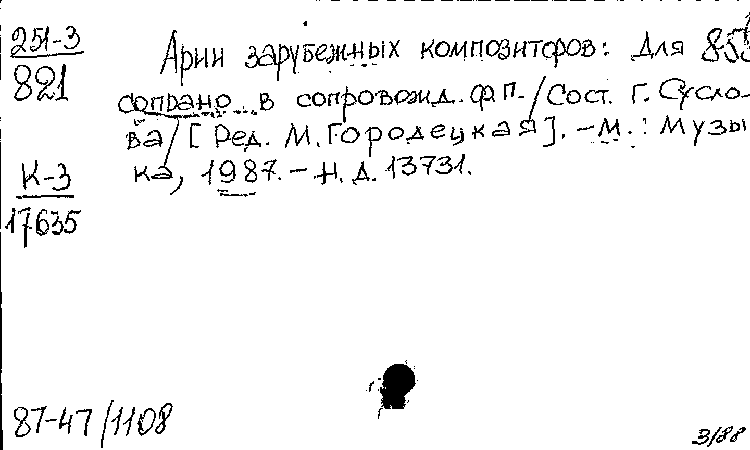 251-3
821
Арии зарубежных композиторов: Для
сопрано в сопровожд. ф.п. / Сост. Г. Сусло-
ва / [Ред. М. Городецкая]. - М.: Музы-
ка, 1987. - Н. Д. 13731.
К-3
17635
87-47/1108
3/88